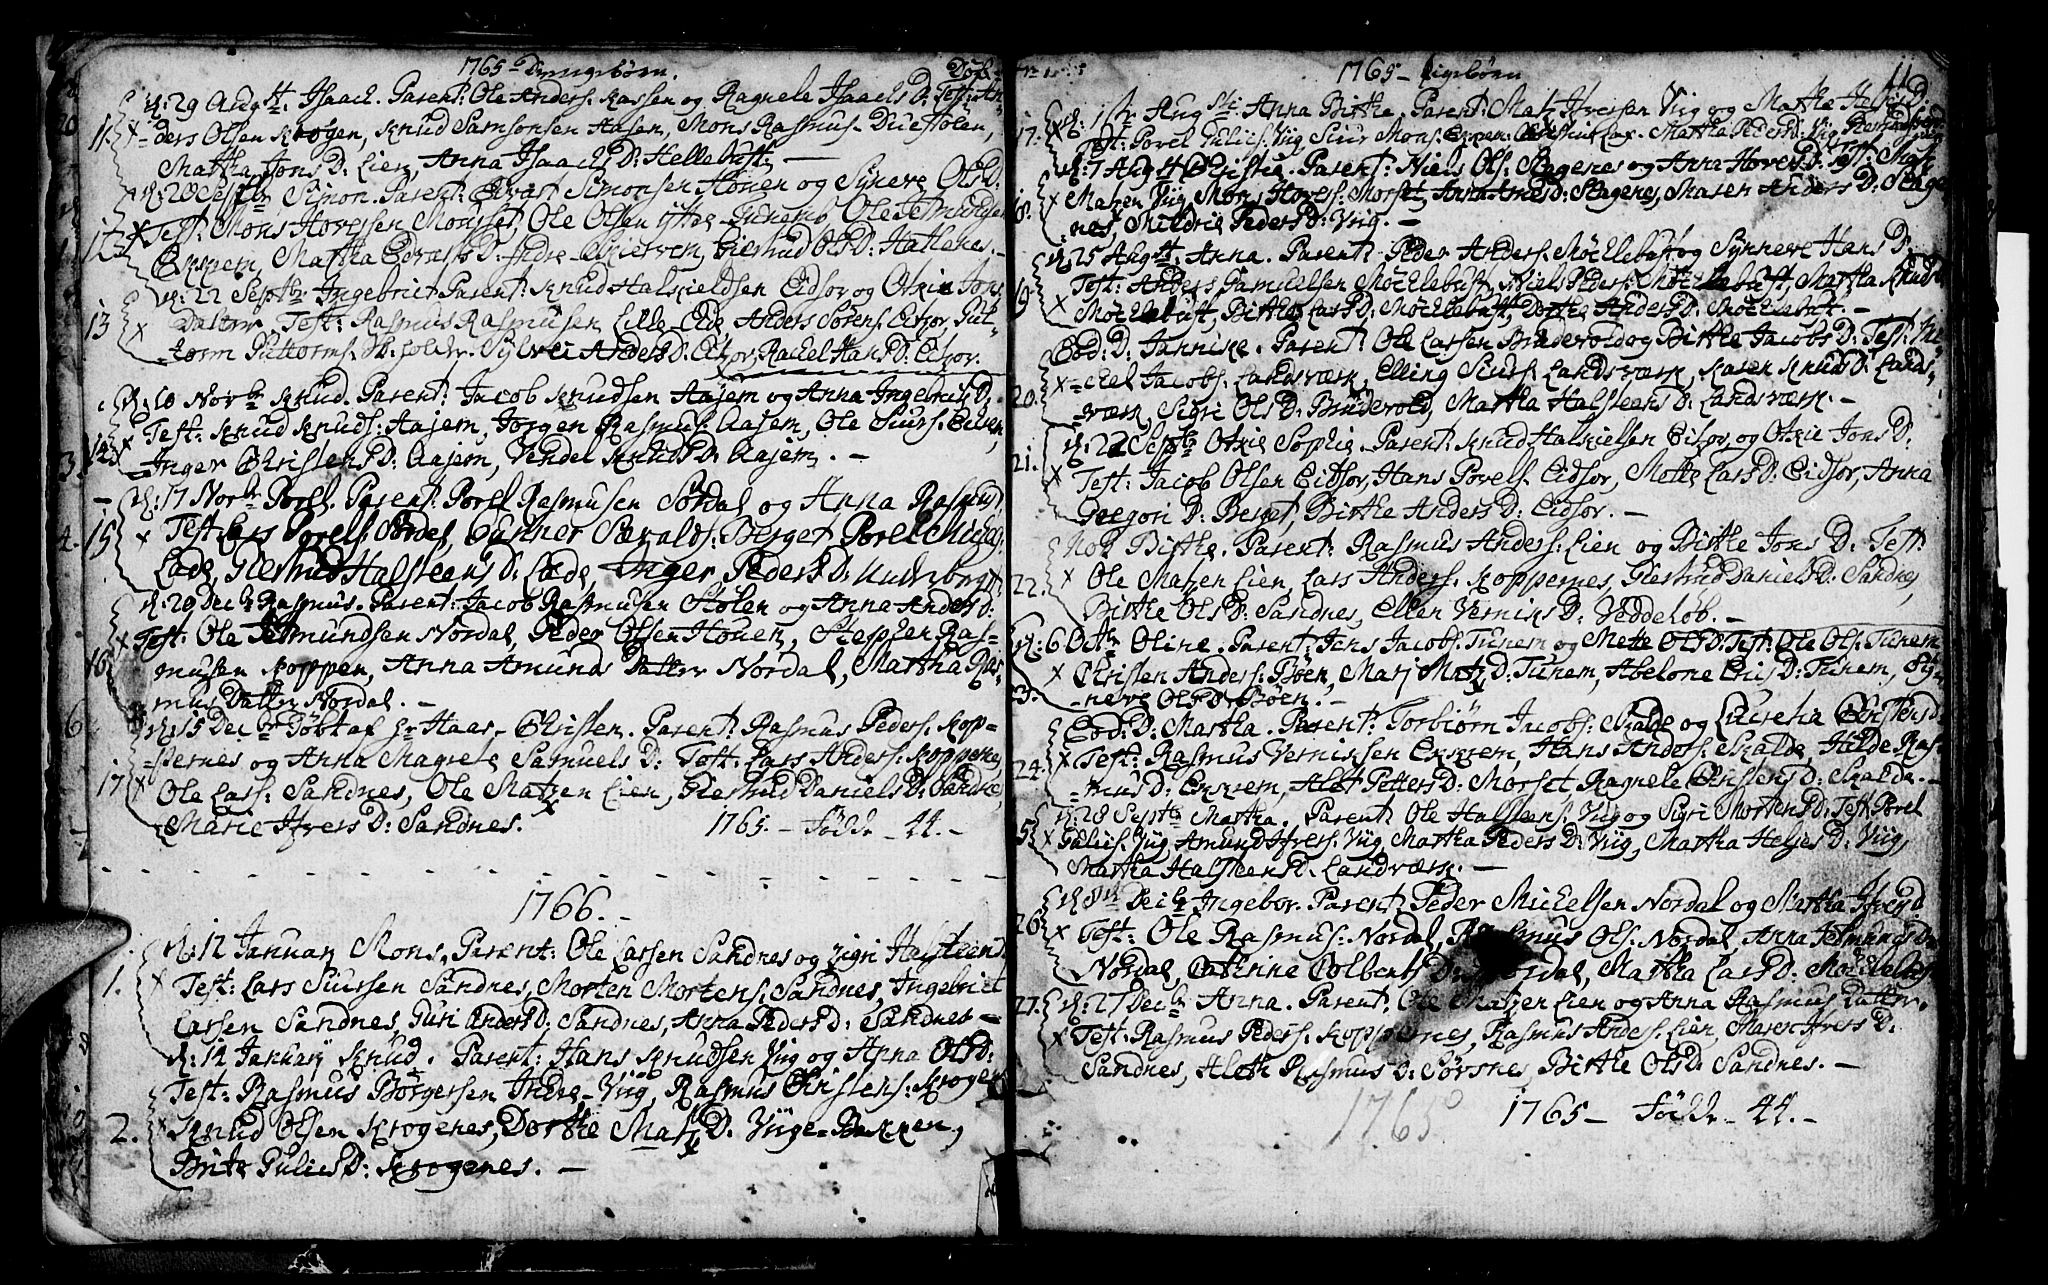 1765 Drengebörn.
Döbte
11. d: 29 Augti. Isaach. Parent: Ole Anders: Aassen og Ragnele Isaachs D: Test: An-
ders Olsen Krogen, Knud Samsonsen Aasen, Mons Rasmus. Duestolen,
Martha Jons D: Lien, Anna Isaachs D: Hellebust. —
12. d: 28 Septbr Simon. Parent: Edvart Simonsen Houen og Synneve Ols D:
Test: Mons Hovessen Mouset, Ole Olsen Ole Tetmunds:
Ekrem, Martha Edvarts D: Indre Giertrud Ols D: Hatlenes. —
13 d: 22 Septbr Ingebrict Parent: Knud Halskieldsen Eidsor og Otkie Jons
Datter, Test: Rasmus Rasmusen Lille-Eide, Anders Sörens: Eidsor, Gut-
torm Guttorms: Sylvei Anders D: Eidsor, Rachel Hans D: Eidsor.
14. d: 10 Novbr Knud. Parent: Jacob Knudsen Aajem og Anna Ingebrits D.
Test: Knud Knuds: Aajem, Jörgen Rasmus: Aajem, Ole Siurs:
Inger Christens D: Aajem, Vendel Knuds D: Aajem. —
15 d: 17 Novbr Povel. Parent: Povel Rasmusen Sördal og Anna Rasmus D.
Test: Lars Povels: Sördal, Gunner Berget, Povel Mickels:
Lade, Giertrud Halsteens D: Lade, Inger Peders D:
16 d: 29 Decbr Rasmus. Parent: Jacob Rasmusen Stölen og Anna Anders D:
Test: Ole Tetmundsen Nordal, Peder Olsen Houen, Stephen Ras-
musen Koppen, Anna Amunds Datter Nordal, Martha Ras-
mus Datter Nordal. —
17 d: 15 Decbr Döbt af Hr Haas. Christen. Parent: Rasmus Peders: Kop-
pernes og Anna Magrete Samuels D: Test: Lars Anders: Koppernes
Ole Lars: Sandnes, Ole Matzen Lien, Giertrud Daniels D: Sandnes,
Marie Ifvers D: Sandnes. 1765. — Födde — 44. —
1766. —
1. d: 12 Januar Mons, Parent: Ole Larsen Sandnes og Sigri Halsteens D
Test: Lars Siursen Sandnes, Morten Mortens: Sandnes, Ingebrict
Larsen Sandnes, Guri Anders D: Sandnes, Anna Peders D: Sandnes —
2. d: 14 Januarij Knud. Parent: Hans Knudsen Viig og Anna Ols D:
Test: Rasmus Börgersen Indre-Viig, Rasmus Christens: Krogenes
Knud Olsen Krogenes, Dorthe Matz D. Viige-Bakken,
Brite Gulies D: Krogenes. —
1765 — Pigebörn
11
17. d: 1ste Augusti Anna Birthe, Parent: Matz Ifversen Viig og Marthe Helies D.
Test: Povel Gulics: Viig, Siur Mons: Lars. Martha Peders D: Viig,
18. d: 7 Augti Christie. Parent: Niels Ols: Skagenes og Anna Hovers D: Test: Mats
Matzen Viig, Mons Hovers: Morset, Anna Arnes D: Skagenes, Maren Anders D: Skage-
nes, Mildrie Peders D: Viig. —
19. d: 25 Augsti. Anna. Parent: Peder Anders: Möchlebust og Synneve Hans D:
Test: Anders Samuelsen Möchlebust, Niels Peders: Möchlebust, Martha Knuds D
Möchlebust, Birthe Lars D: Möchlebust, Dorthe Anders D: Möchlebust. —
20. Eod: D: Jannike. Parent: Ole Larsen Brudevold og Birthe Jacobs D: Test: Mi-
ckel Jacobs: Landsværk, Elling Siurs: Landsværk, Karen Knuds D: Lands-
værk, Sigri Ols D: Brudevold, Martha Halsteens D: Landsværk. —
21. d: 22 Septbr Otkie Sophie. Parent: Knud Halskielsen Eidsor, og Otkie Jons D.
Test: Jacob Olsen Eidsor, Hans Povels: Eidsor, Mette Lars D: Eidsor, Anna
Gregori D: Berget, Birthe Anders D: Eidsor. —
22. Nok Birthe. Parent: Rasmus Anders: Lien og Birthe Jons D: Test:
Ole Matzen Lien, Lars Anders: Koppernes, Giertrud Daniels D: Sandnes,
Birthe Ols D: Sandnes, Ellen Vernicks D: Veddeløb. —
23. d: 6 Octbr Oline. Parent: Jens Jacobs: Tunem og Mette Ols D: Test: Ole Ols: Tunem
Christen Anders: Böen, Mari Matz D: Tunem, Abelone Eriks D: Tunem, Syn-
neve Ols D: Böen. —
24. Eod: D: Martha. Parent: Torbiörn Jacobs: Skalde og Lucretia Christens D:
Test: Rasmus Vernicksen Ekrem, Hans Anders: Skalde, Hilde Ras-
mus D: Ekrem, Alet Petters D: Morset, Ragnele Christens D: Skalde. —
25 d: 28 Septbr Martha. Parent: Ole Halsteens: Viig og Sigri Mortens D: Test: Povel
Gulics: Viig, Amund Ifvers: Viig, Martha Peders D: Viig, Martha Helies D: Viig,
Martha Halsteens D: Landværk. —
26. d: 8de Decbr Ingebor. Parent: Peder Mickelsen Nordal og Martha Ifvers D.
Test: Ole Rasmus: Nordal, Rasmus Ols: Nordal, Anna Tetmunds D:
Nordal, Cathrine Colbents D: Nordal, Martha Lars D: Möchlebust
27. d: 27 Decbr Anna. Parent: Ole Matzen Lien og Anna Rasmus Datter.
Test: Rasmus Peders: Koppernes, Rasmus Anders: Lien, Maren Ifvers D:
Sandnes, Aleth Rasmus D: Sörsnes, Birthe Ols D: Sandnes. —
1765 1765 — Födde — 44. —